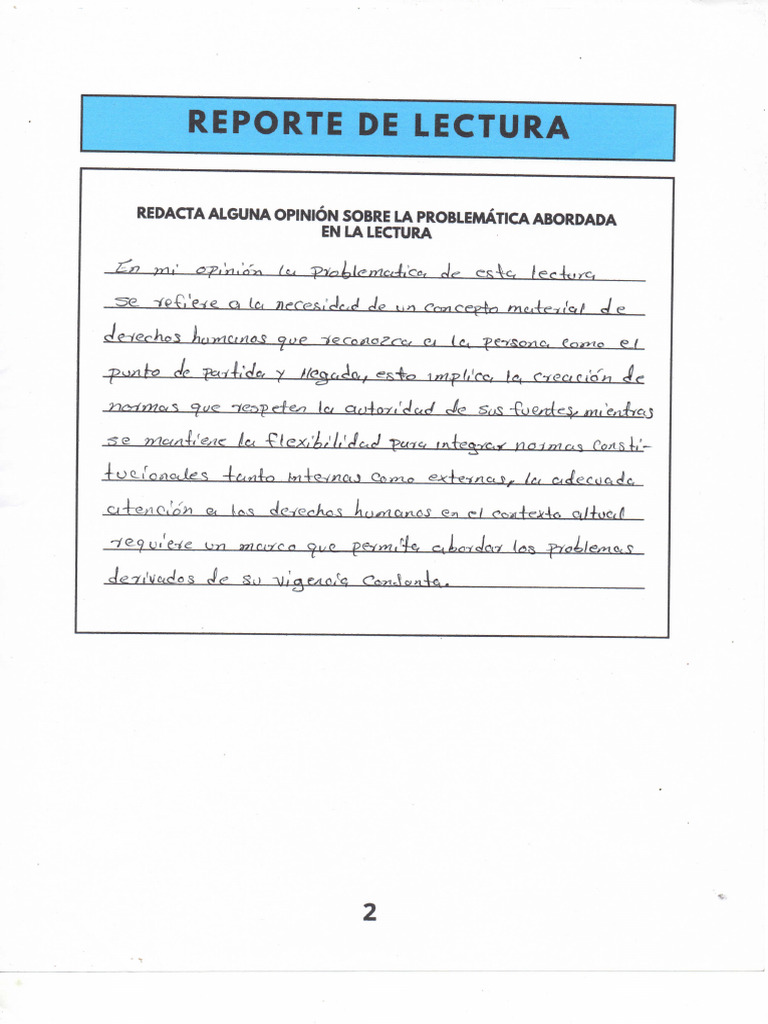 REPORTE DE LECTURA
REDACTA ALGUNA OPINIÓN SOBRE LA PROBLEMÁTICA ABORDADA
EN LA LECTURA
En mi opinión la problematica de esta lectura
se refiere a la necesidad de un concepto material de
derechos humanos que reconozca a la persona como el
punto de partida y llegada, esto implica la creación de
normas que respeten la autoridad de sus fuentes, mientras
se mantiene la flexibilidad para integrar normas consti-
tucionales tanto internas como externas, la adecuada
atención a los derechos humanos en el contexto altual
requiere un marco que permita abordar los problemas
derivados de su vigencia Condanta.
2